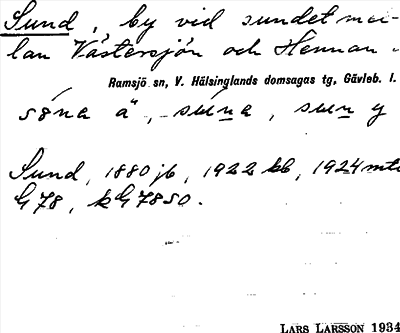 Sund, by vid sundet mel-
lan Västersjön och Hennan.
Ramsjö sn, V. Hälsinglands domsagas tg, Gävleb. l.
Sund, 1880 jb, 1922 kb, 1924 mtl
G 78, kG 7850.
LARS LARSSON 1934